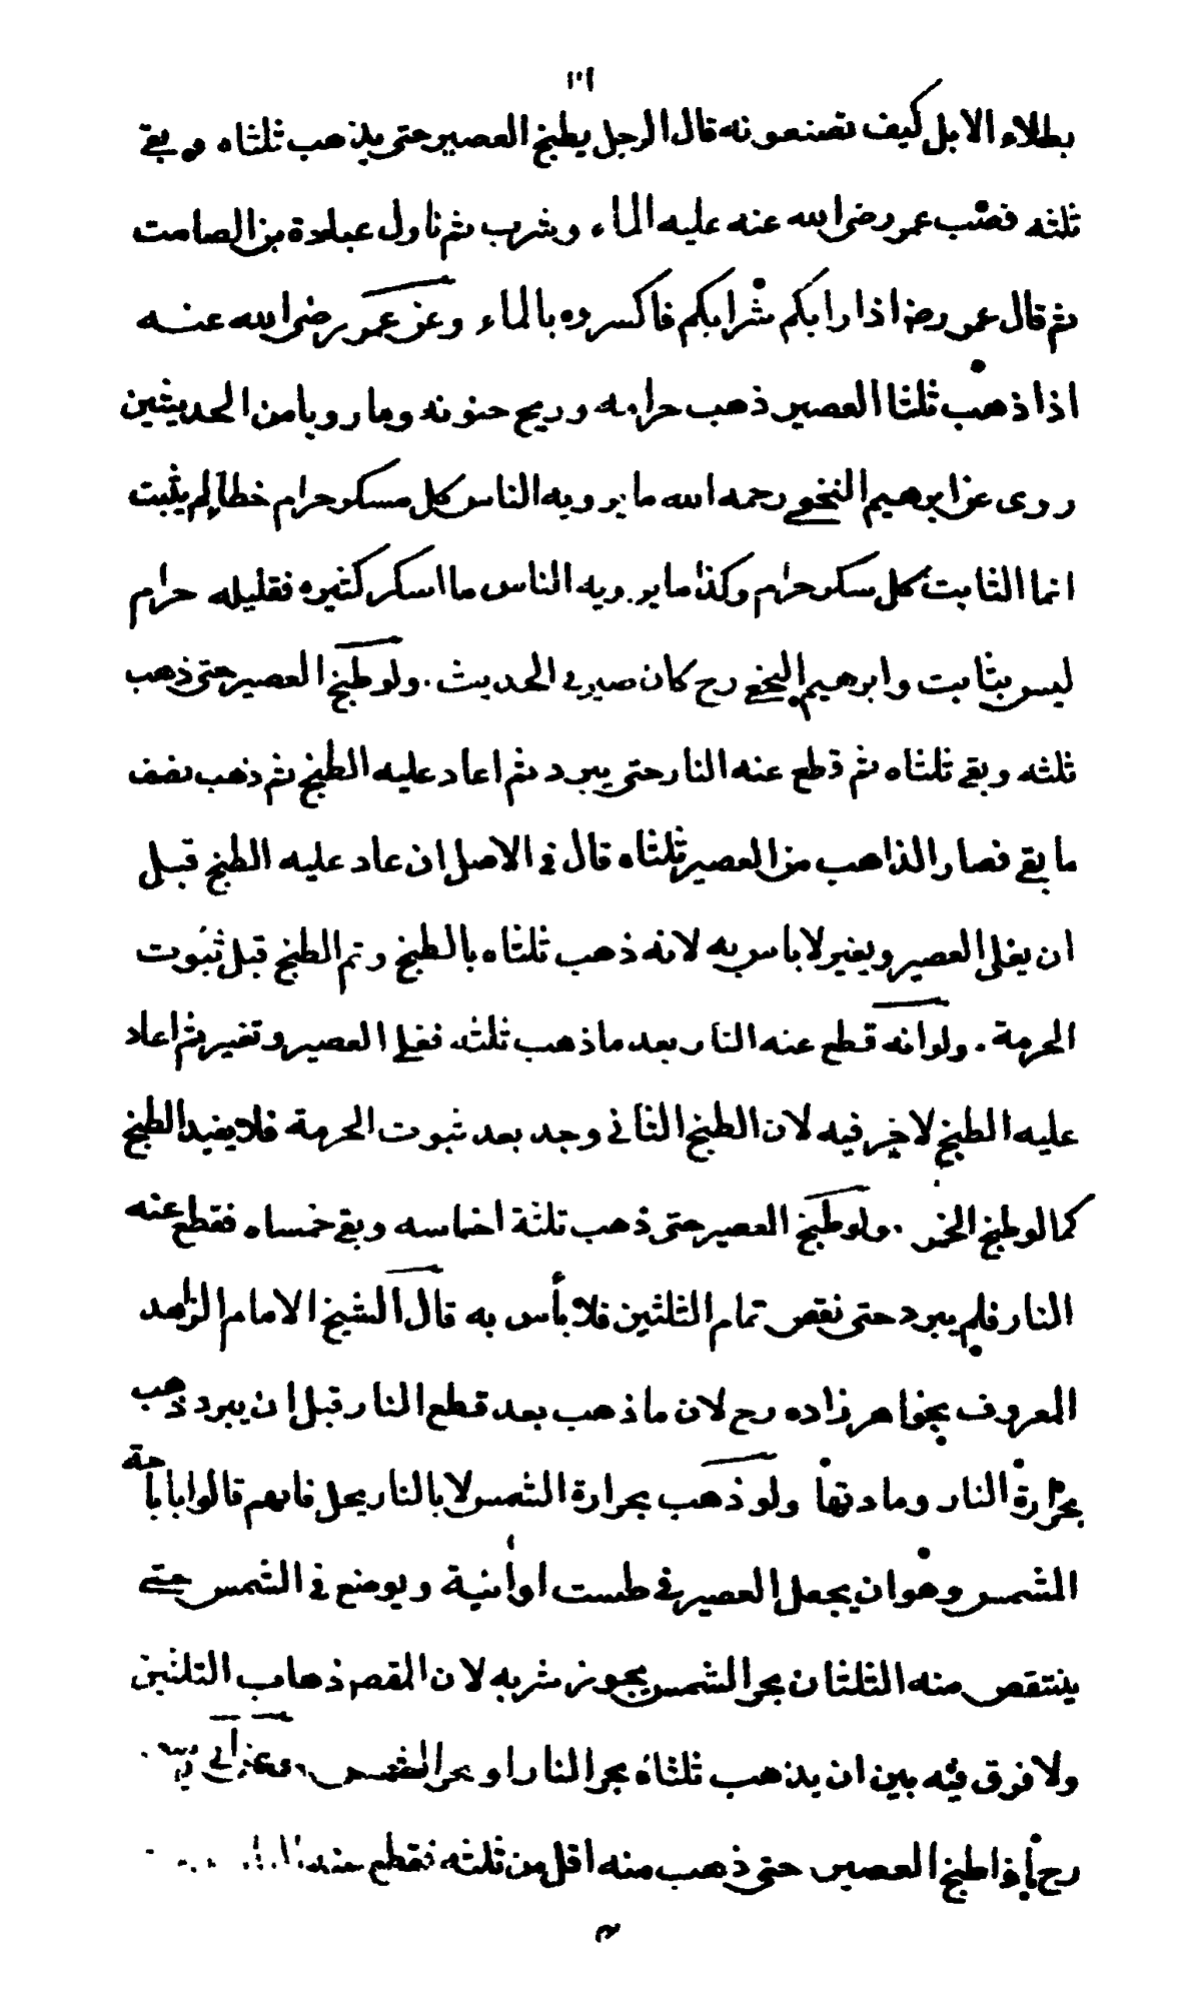 بطلاء الابل كيف تصنعونه قال الرجل يطبخ العصير حتى يذهب ثلثاه وبقي
ثلثه فصب عمر رضي الله عنه عليه الماء وشرب ثم ناول عبادة بن الصامت
ثم قال عمر رضه اذا رابكم شرابكم فاكسروه بالماء وعن عمر رضي الله عنه
اذا ذهب ثلثا العصير ذهب حرامه وريح جنونه وما رويا من الحديثين
روى عن ابرهيم النخعي رحمه الله ما يرويه الناس كل مسكر حرام خطأ لم يثبت
انما الثابت كل سكر حرام وكذا ما يرويه الناس ما اسكر كثيره فقليله حرام
ليس بثابت وابرهيم النخعي رح كان صيرفي الحديث . ولو طبخ العصير حتى ذهب
ثلثه وبقي ثلثاه ثم قطع عنه النار حتى يبرد ثم اعاد عليه الطبخ ثم ذهب نصف
ما بقي فصار الذاهب من العصير ثلثاه قال في الاصل ان عاد عليه الطبخ قبل
ان يغلى العصير ويغير لا باس به لانه ذهب ثلثاه بالطبخ وتم الطبخ قبل ثبوت
الحرمة . ولو انه قطع عنه النار بعد ما ذهب ثلثه فغلى العصير وتغير ثم اعاد
عليه الطبخ لا خير فيه لان الطبخ الثاني وجد بعد ثبوت الحرمة فلا يفيد الطبخ
كما لو طبخ الخمر . ولو طبخ العصير حتى ذهب ثلثة اخماسه وبقي خمساه فقطع عنه
النار فلم يبرد حتى نقص تمام الثلثين فلا بأس به قال الشيخ الامام الزاهد
المعروف بخواهر زاده رح لان ما ذهب بعد قطع النار قبل ان يبرد ذهب
بحرارة النار ومادتها ولو ذهب بحرارة الشمس لا بالنار يحل فانهم قالوا باباحة
الشمس وهو ان يجعل العصير في طست او انية ويوضع في الشمس حتى
ينتقص منه الثلثان بحر الشمس يجوز شربه لان المقص ذهاب الثلثين
ولا فرق فيه بين ان يذهب ثلثاه بحر النار او بحر الشمس وعن ابي
رح اذا طبخ العصير حتى ذهب منه اقل من ثلثه فقطع عنه